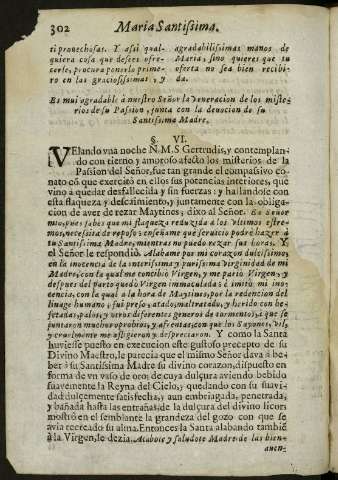 302 Maria Santissima.
ti prouechosas. Y asi qual-
quiera cosa que desees ofre-
cerle, procura ponerlo prime-
ro en las graciosissimas, y
agradabilissimas manos de
Maria, sino quieres que tu
oferta no sea bien recibi-
da.
Es mui agradable à nuestro Señor la veneracion de los miste-
rios de su Passion, junta con la deuocion de su
Santissima Madre.
§. VI.
VElando vna noche N. M. S Gertrudis, y contemplan-
do con tierno y amoroso afecto los misterios de la
Passion del Señor, fue tan grande el compassivo co-
nato cõ que exercitò en ellos sus potencias interiores, que
vino à quedar desfallecida y sin fuerzas: y hallandose con
esta flaqueza y descaimiento, y juntamente con la obliga-
cion de aver de rezar Maytines, dixo al Señor. Ea Señor
mio, pues sabes que mi flaqueza reduzida à los vltimos estre-
mos, necessita de reposo: enseñame que seruicio podrè hazer à
tu Santissima Madre, mientras no puedo rezar sus horas. Y
el Señor le respondiò. Alabame por mi corazon dulcissimo,
en la inocencia de la interissima y purissima virginidad de mi
Madre; con la qual me concibiò Virgen, y me pariò Virgen, y
despues del parto quedò Virgen immaculada: è imitò mi ino-
cencia, con la qual à la hora de Maytines, por la redencion del
linage humano, fui preso, atado, maltratado, y herido con bo-
fetadas, palos, y otros diferentes generos de tormentos, à que se
juntaron muchos oprobrios, y afrentas; con que los Sayones, vil,
y cruelmente me afligieron y despreciaron. Y como la Santa
huviesse puesto en execucion este gustoso precepto de su
Divino Maestro, le parecia que el mismo Señor dava à be-
ber à su Santissima Madre su divino corazon, dispuesto en
forma de vn vaso de oro; de cuya dulçura aviendo bebido
suavemente la Reyna del Cielo, y quedando con su suavi-
dad dulcemente satisfecha, y aun embriagada, penetrada,
y bañada hasta las entrañas, de la dulçura del divino licor:
mostrò en el semblante la grandeza del gozo con que se
avia recreado su alma. Entonces la Santa alabando tambiẽ
à la Virgen, le dezia. Alabote y saludote Madre de las bien-
auen-